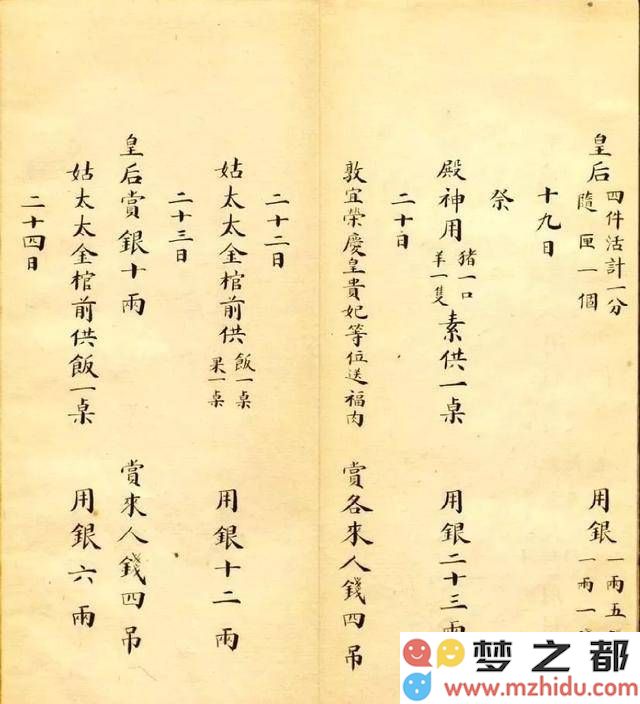 皇后 四件活計一分 隨匣一個 用銀 一兩五 一兩一
十九日
祭
殿神用 猪一口 羊一隻 素供一桌 用銀二十三兩
二十日
敦宜榮慶皇貴妃等位送福肉 賞各來人錢四吊
二十二日
姑太太金棺前供 飯一桌 果一桌 用銀十二兩
二十三日
皇后賞銀十兩 賞來人錢四吊
姑太太金棺前供飯一桌 用銀六兩
二十四日
梦之都
www.mzhidu.com